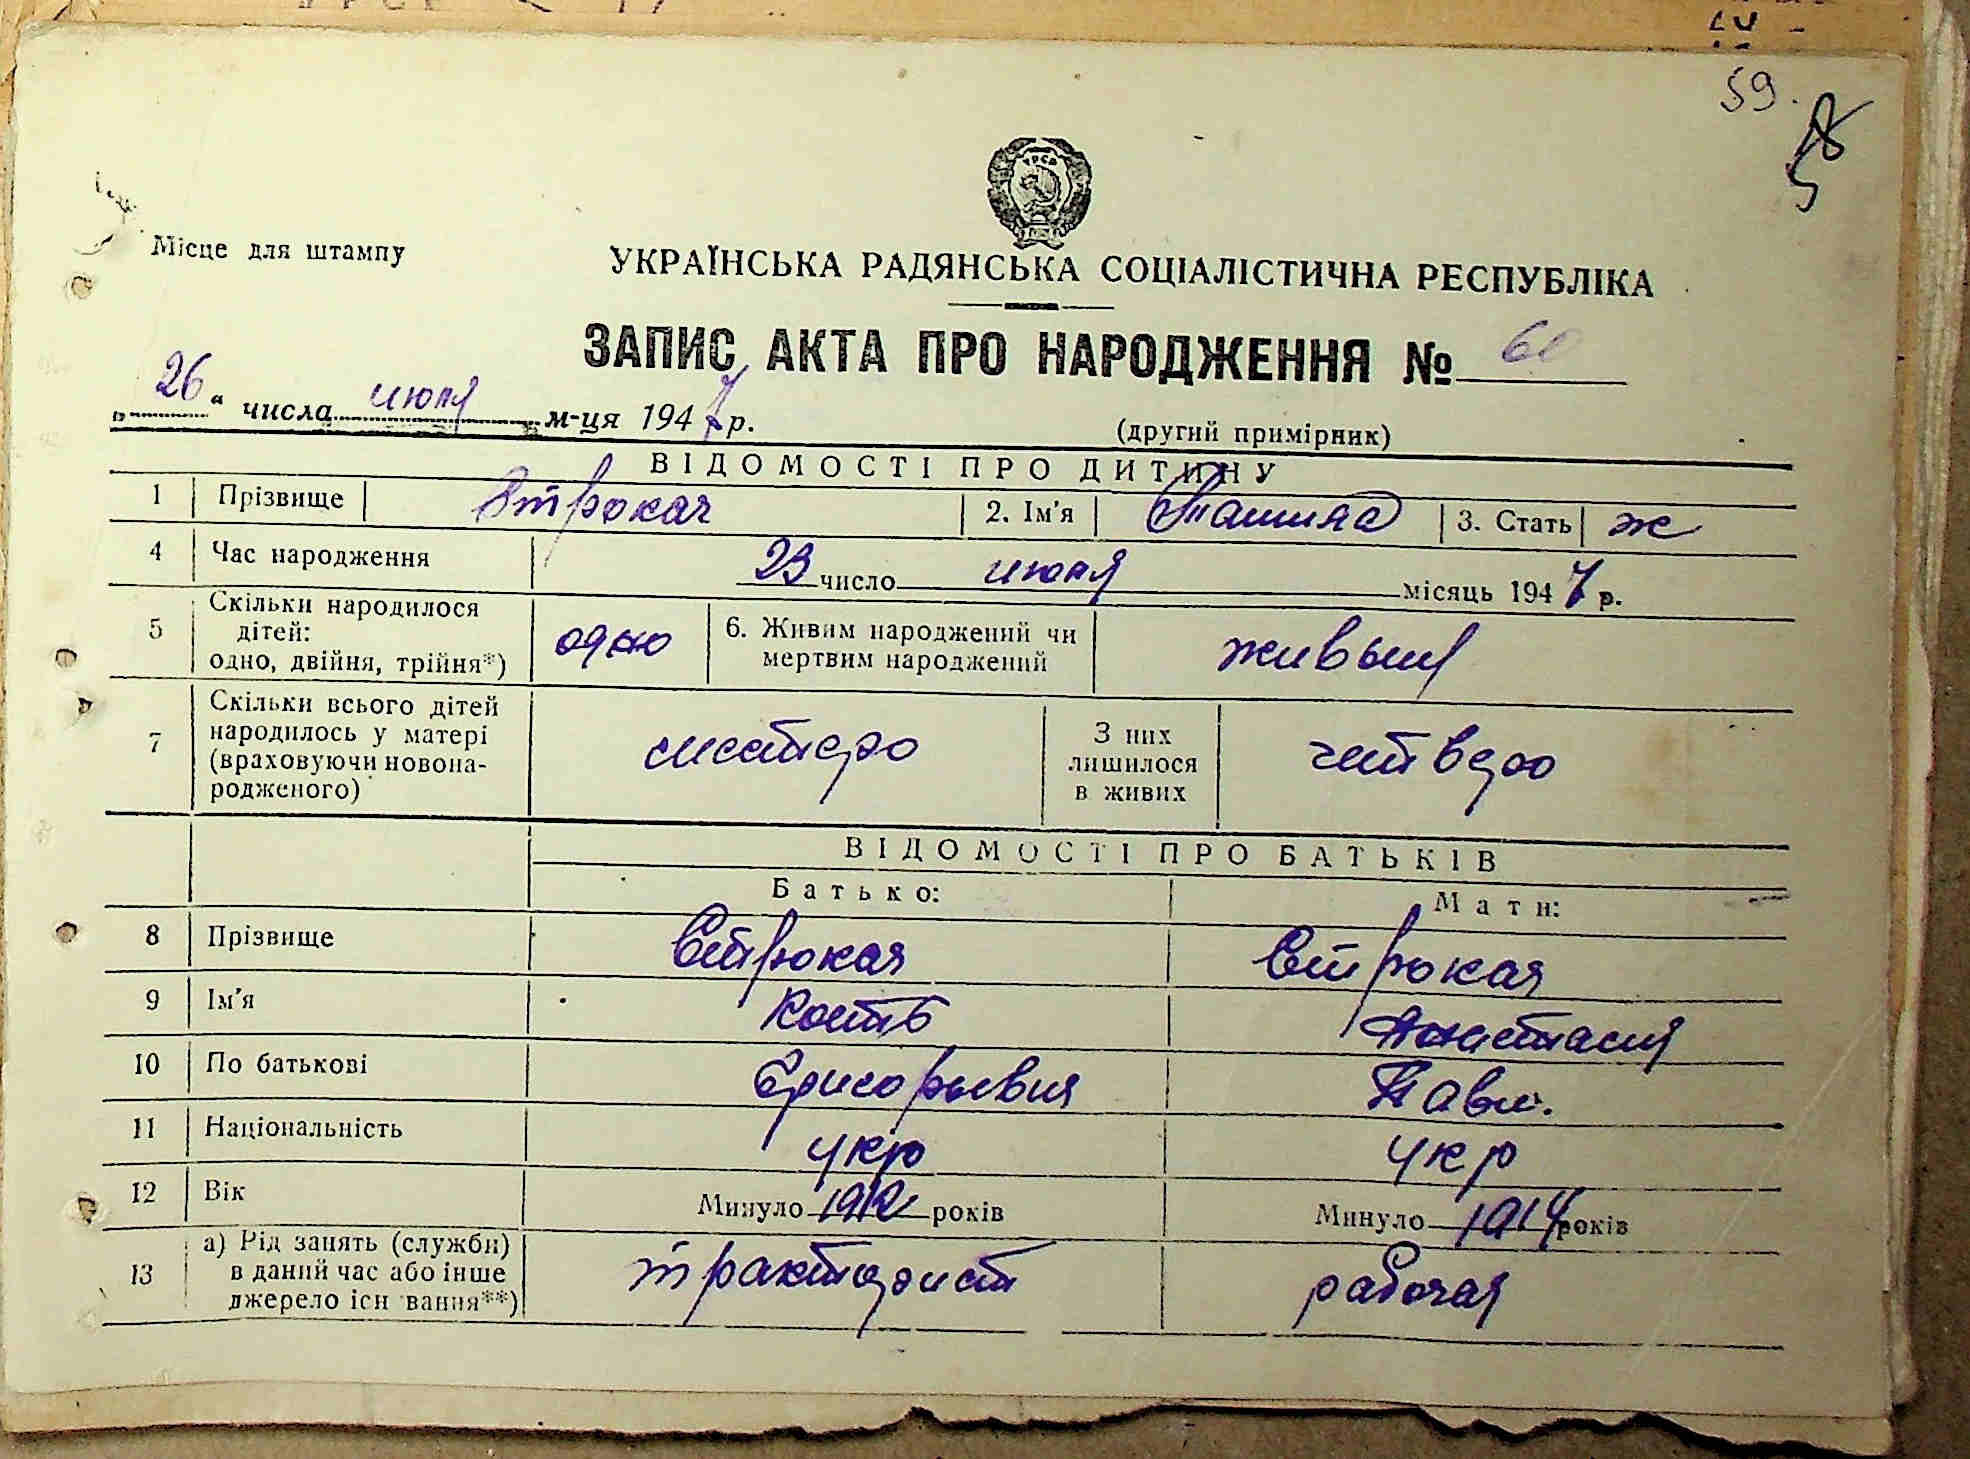 59.
58
УРСР
Місце для штампу
УКРАЇНСЬКА РАДЯНСЬКА СОЦІАЛІСТИЧНА РЕСПУБЛІКА
ЗАПИС АКТА ПРО НАРОДЖЕННЯ № 60
„26“ числа июля м-ця 1947 р.
(другий примірник)
ВІДОМОСТІ ПРО ДИТИНУ
1 Прізвище Строкач 2. Ім'я 3. Стать ж
4 Час народження 23 число июля місяць 1947 р.
5 Скільки народилося дітей: одно, двійня, трійня*) одно 6. Живим народжений чи мертвим народжений живым
7 Скільки всього дітей народилось у матері (враховуючи новонародженого) шестеро З них лишилося в живих четверо
ВІДОМОСТІ ПРО БАТЬКІВ
Батько: Мати:
8 Прізвище Строкач Строкач
9 Ім'я Кость Анастасия
10 По батькові Григорьевич Павл.
11 Національність укр укр
12 Вік Минуло 1912 років Минуло 1914 років
13 а) Рід занять (служби) в даний час або інше джерело існування**) тракторист рабочая